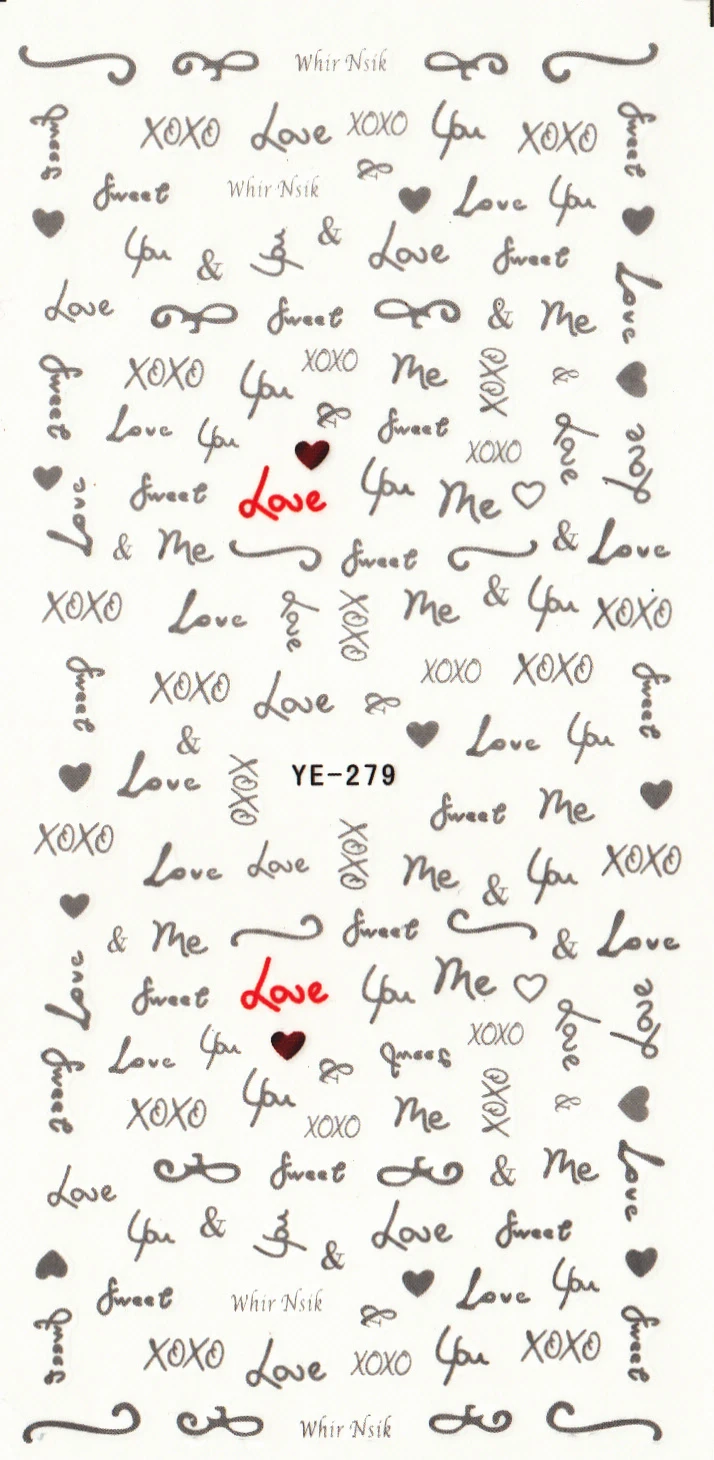 Whir Nsik
Sweet XOXO Love XOXO You XOXO Sweet
Sweet Whir Nsik & Love You
You & You & Love Sweet Love
Love Sweet & Me
Sweet XOXO You XOXO Me XOXO &
Love You & Sweet XOXO Love Love
Love Sweet Love You Me
& Me Sweet & Love
XOXO Love Love XOXO Me & You XOXO
Sweet XOXO Love & XOXO XOXO Sweet
& Love XOXO Love You
YE-279
Sweet Me
XOXO Love Love XOXO Me & You XOXO
& Me Sweet & Love
Love Sweet Love You Me Love Love
Sweet Love You & Sweet XOXO
XOXO You XOXO Me XOXO &
Love Sweet & Me Love
You & You & Love Sweet
Sweet Whir Nsik & Love You
Sweet XOXO Love XOXO You XOXO Sweet
Whir Nsik